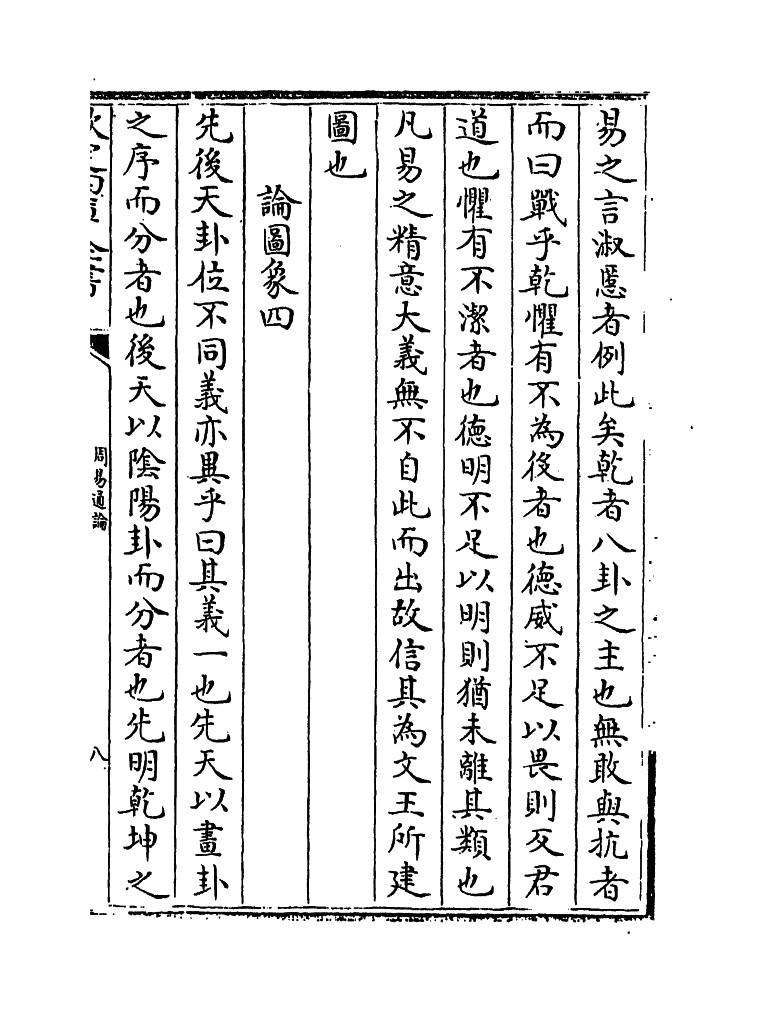 易之言淑慝者例此矣乾者八卦之主也無敢與抗者
而曰戰乎乾懼有不為役者也德威不足以畏則反君
道也懼有不潔者也德明不足以明則猶未離其類也
凡易之精意大義無不自此而出故信其為文王所建
圖也
論圖象四
先後天卦位不同義亦異乎曰其義一也先天以畫卦
之序而分者也後天以陰陽卦而分者也先明乾坤之
周易通論
八